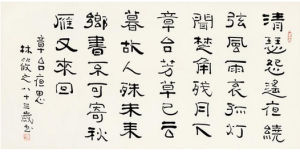 清瑟怨遙夜繞
弦風雨哀孤灯
聞楚角殘月下
章台芳草已云
暮故人殊未来
鄉書不可寄秋
雁又南回
章台夜思
林之八十三歲书